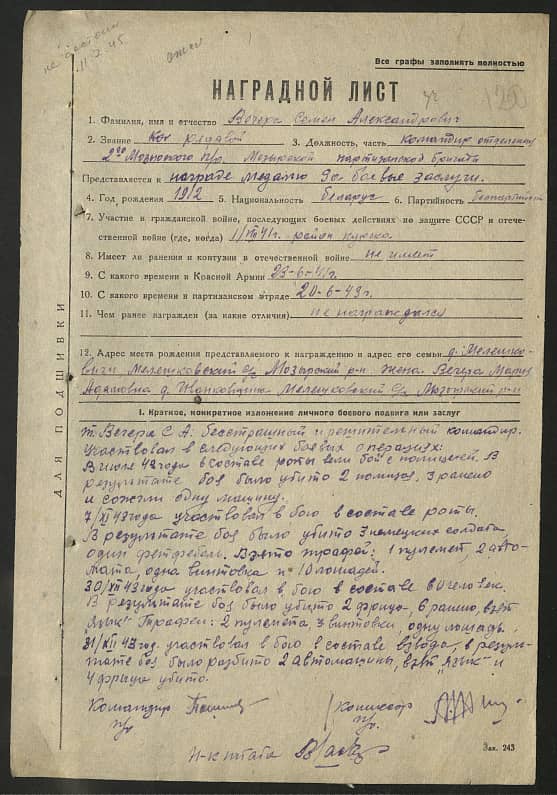 не достоин
11.2.45
Все графы заполнять полностью
НАГРАДНОЙ ЛИСТ
1. Фамилия, имя и отчество Вечера Семен Александрович
2. Звание рядовой 3. Должность, часть командир отделения
2го Мозырского п/о. Мозырской партизанской бригады
Представляется к награде медалью За боевые заслуги.
4. Год рождения 1912 5. Национальность беларус 6. Партийность беспартийный
7. Участие в гражданской войне, последующих боевых действиях по защите СССР и отече-
ственной войне (где, когда) район
8. Имеет ли ранения и контузии в отечественной войне не имеет
9. С какого времени в Красной Армии 23-6-41г.
10. С какого времени в партизанском отряде 20-6-43г.
11. Чем ранее награжден (за какие отличия) не награждался
12. Адрес места рождения представляемого к награждению и адрес его семьи д. Мелешко-
вичи Мелешковский с/с Мозырский р-н жена Вечера Мария
Адамовна д. Мелешковский с/с Мозырский р-н
ДЛЯ ПОДШИВКИ
I. Краткое, конкретное изложение личного боевого подвига или заслуг
т. Вечера С А. бесстрашный и решительный командир.
Участвовал в следующих боевых операциях:
В июле 43 года в составе роты вели бой с полицией. В
результате боя было убито 2 полицая, 3 ранено
и сожгли одну машину.
7/XI 43 года участвовал в бою в составе роты.
В результате боя было убито 3 немецких солдата,
один фельдфебель. Взято трофей: 1 пулемет, 2 авто-
мата, одна винтовка и 10 лошадей.
30/XII 43 года участвовал в бою в составе человек.
В результате боя было убито 2 фрица, 6 ранено, взят
"язык" Трофеи: 2 пулемета, 3 винтовки, одну лошадь.
31/XII 43 год. участвовал в бою в составе взвода, в резуль-
тате боя было разбито 2 автомашины, взят "язык" и
4 фрица убито.
Командир Комиссар
п/о. п/о.
н-к штаба
Зак. 243